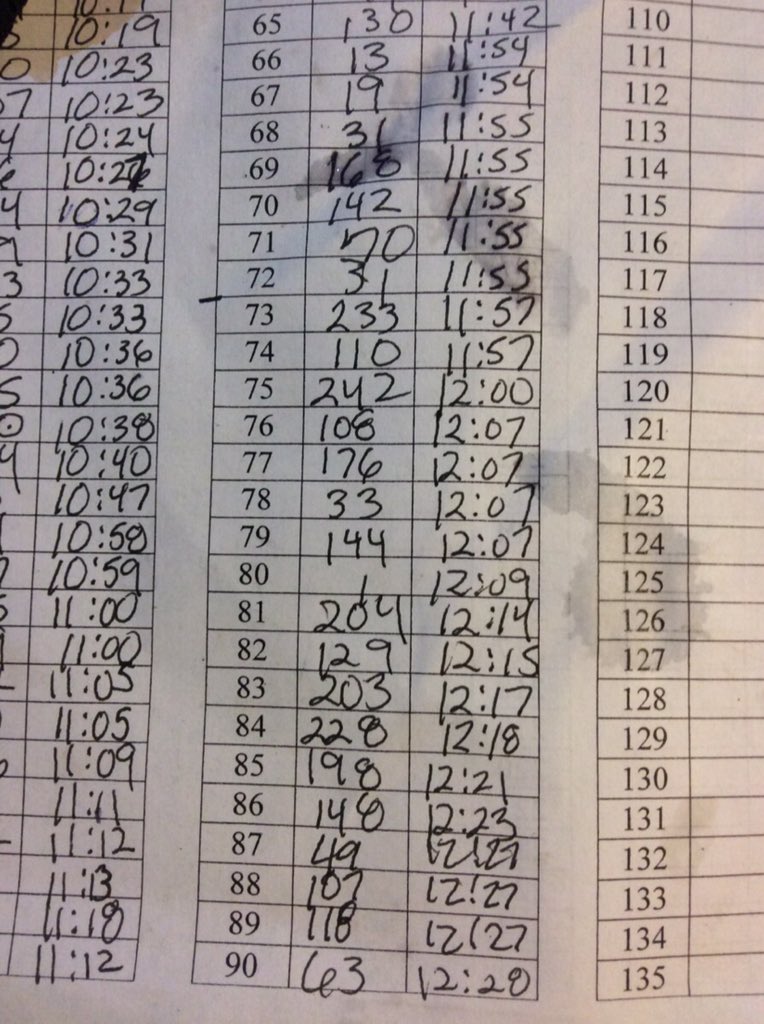 10:19
10:23
10:23
10:24
10:29
10:31
10:33
10:33
10:36
10:36
10:38
10:40
10:47
10:58
10:59
11:00
11:00
11:05
11:05
11:09
11:11
11:12
11:13
11:18
11:12
65 130 11:42
66 13 11:54
67 19 11:54
68 31 11:55
69 168 11:55
70 142 11:55
71 70 11:55
72 31 11:55
73 233 11:57
74 110 11:57
75 242 12:00
76 108 12:07
77 176 12:07
78 33 12:07
79 144 12:07
80 1 12:09
81 204 12:14
82 129 12:15
83 203 12:17
84 228 12:18
85 198 12:21
86 148 12:23
87 49 12:27
88 107 12:27
89 118 12:27
90 63 12:28
110
111
112
113
114
115
116
117
118
119
120
121
122
123
124
125
126
127
128
129
130
131
132
133
134
135